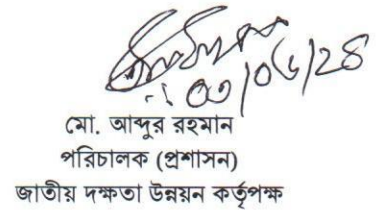 ০৩/০৬/২৪
মো. আব্দুর রহমান
পরিচালক (প্রশাসন)
জাতীয় দক্ষতা উন্নয়ন কর্তৃপক্ষ